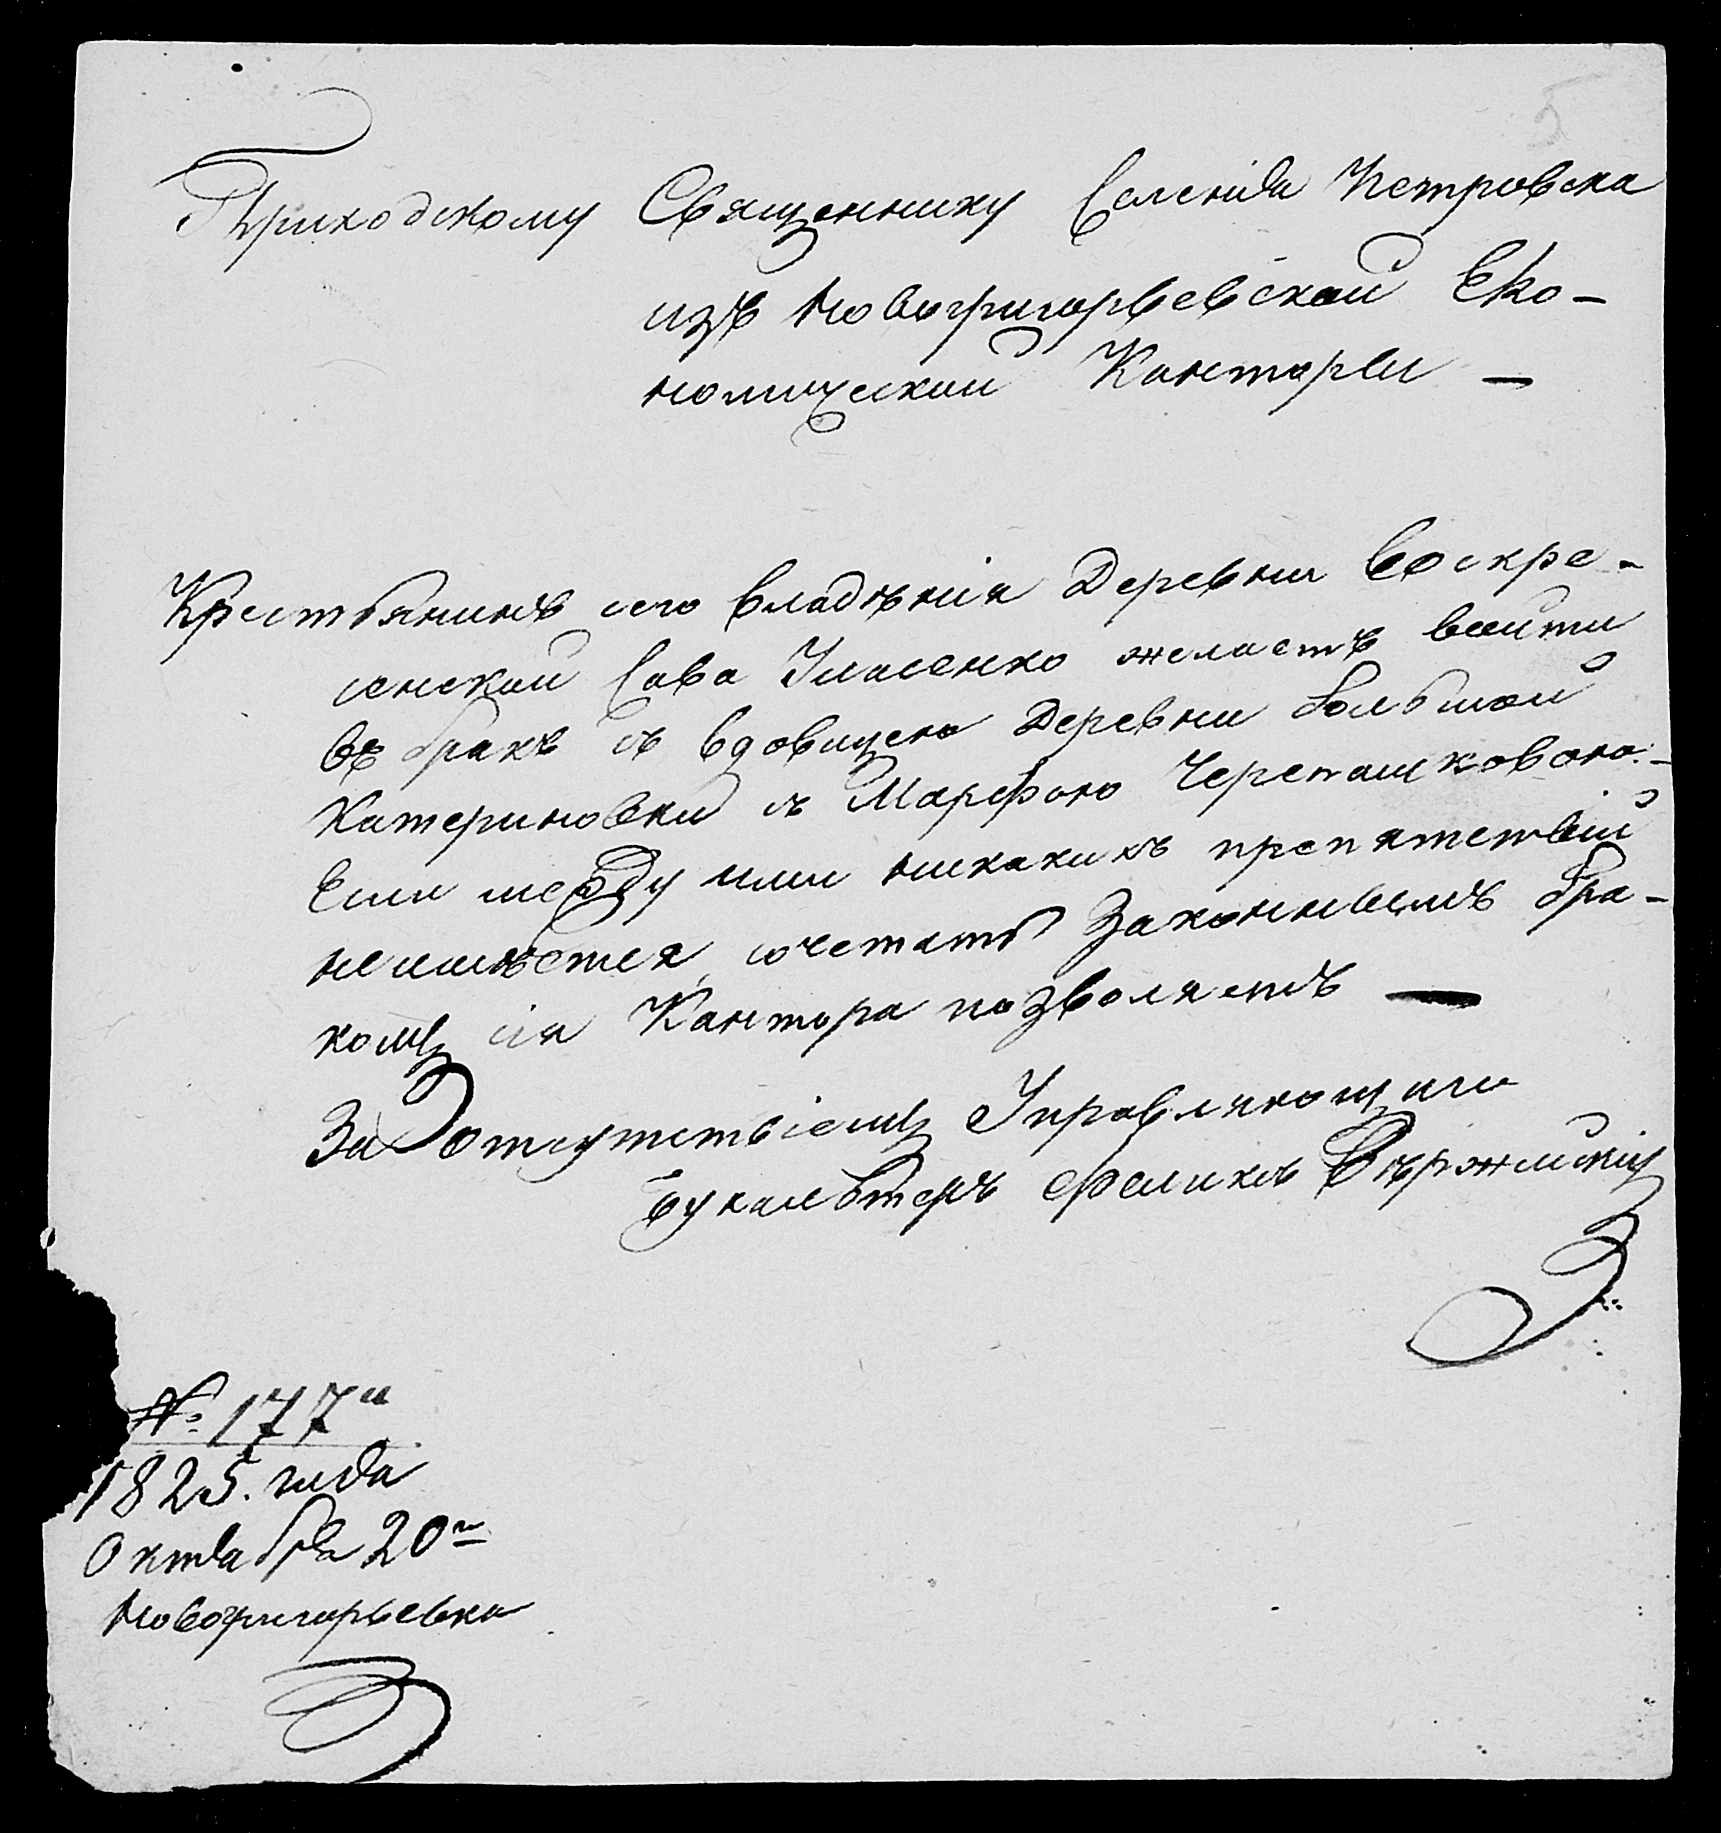 5
Приходскому Священнику Селенія Петровска
изъ Новогригорьевской Еко-
номической Канторы —
Крестьянинъ сего владѣнія Деревни Воскре-
сенской Сава Власенко желаетъ войти
въ бракъ съ вдовицею Деревни Большой
Катериновки съ Марфою Черепашковою.-
Если между ими никакихъ препятствій
неимѣется, сочетать Законнымъ бра-
комъ сія Кантора позволяетъ —
За отсутствіемъ Управляющаго
Бухалтеръ Феликсъ
№ 177й
1825. года
Октября 20го
Новогригорьевка